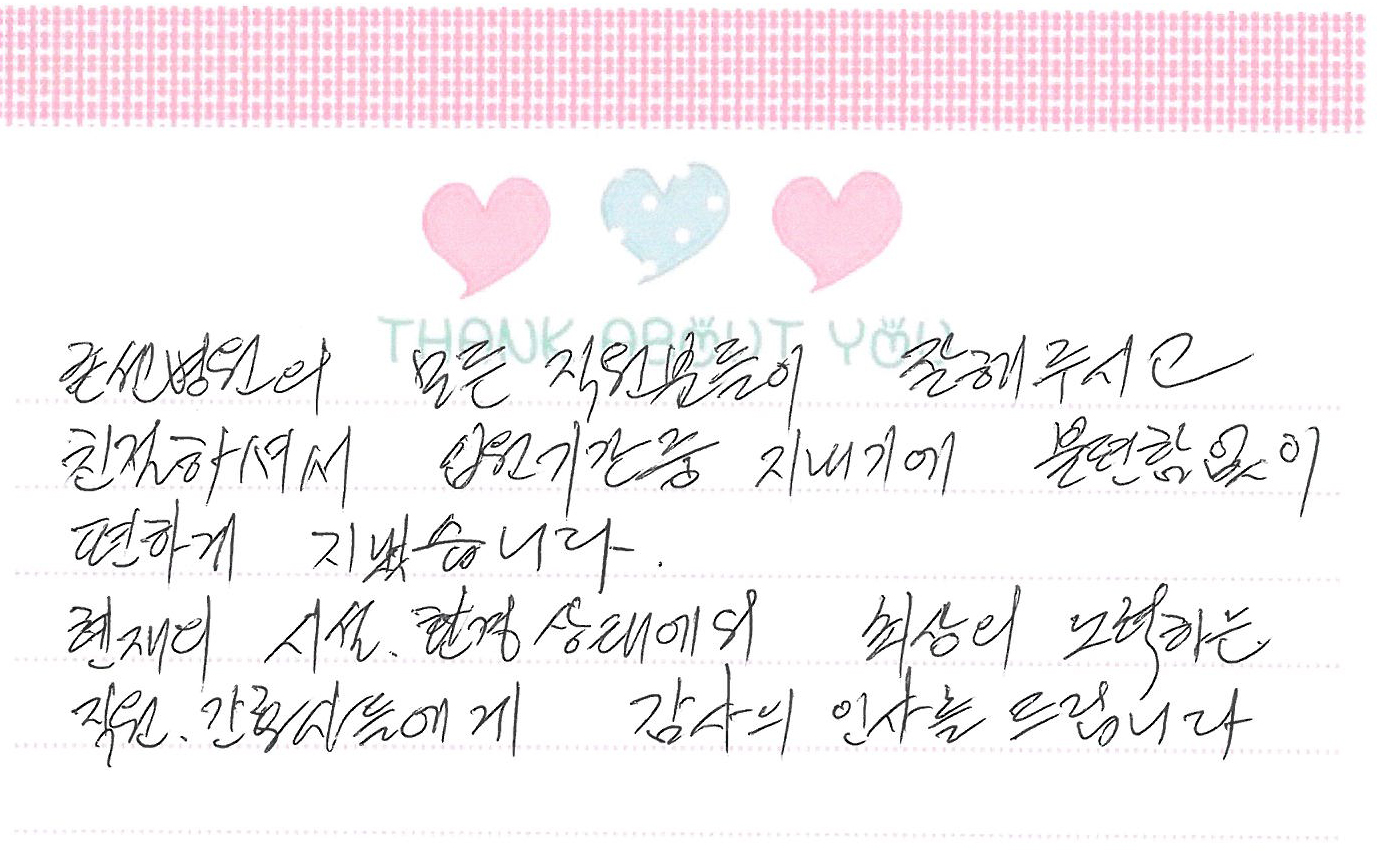 THANK ABOUT YOU
조선병원의 모든 직원분들이 잘해주시고
친절하셔서 입원기간중 지내기에 불편함없이
편하게 지냈습니다.
현재의 시설.환경상태에의 최상의 노력하는
직원.간호사들에게 감사의 인사를 드립니다